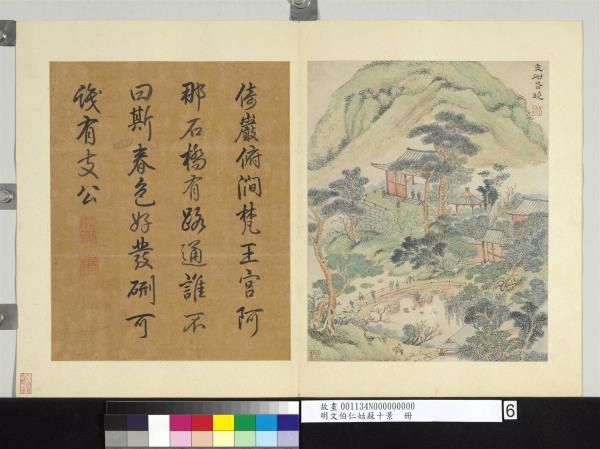 支硎春曉
倚巖俯澗梵王宮阿
那石橋有路通誰不
曰斯春色好發硎可
識有支公
故畫 001134N000000000
明文伯仁姑蘇十景 冊
6